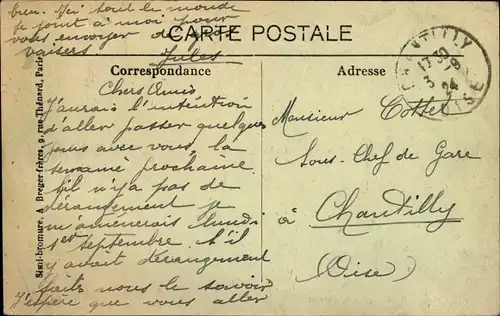 bien. Ici tout le monde
se joint à moi pour
vous envoyer de gros
baisers
Jules
CARTE POSTALE
Correspondance
Adresse
CHANTILLY
17 30
3 -9
24
OISE
Chers Amis
J'aurais l'intention
d'aller passer quelques
jours avec vous, la
semaine prochaine.
s'il n'y a pas de
dérangement je
m'amènerais lundi
1er septembre. S'il
y avait dérangement
faites nous le savoir
J'espère que vous allez
Monsieur Cottet
Sous-Chef de Gare
à Chantilly
(Oise)
Simi-bromure, A. Breger frères, 9, rue Thénard, Paris